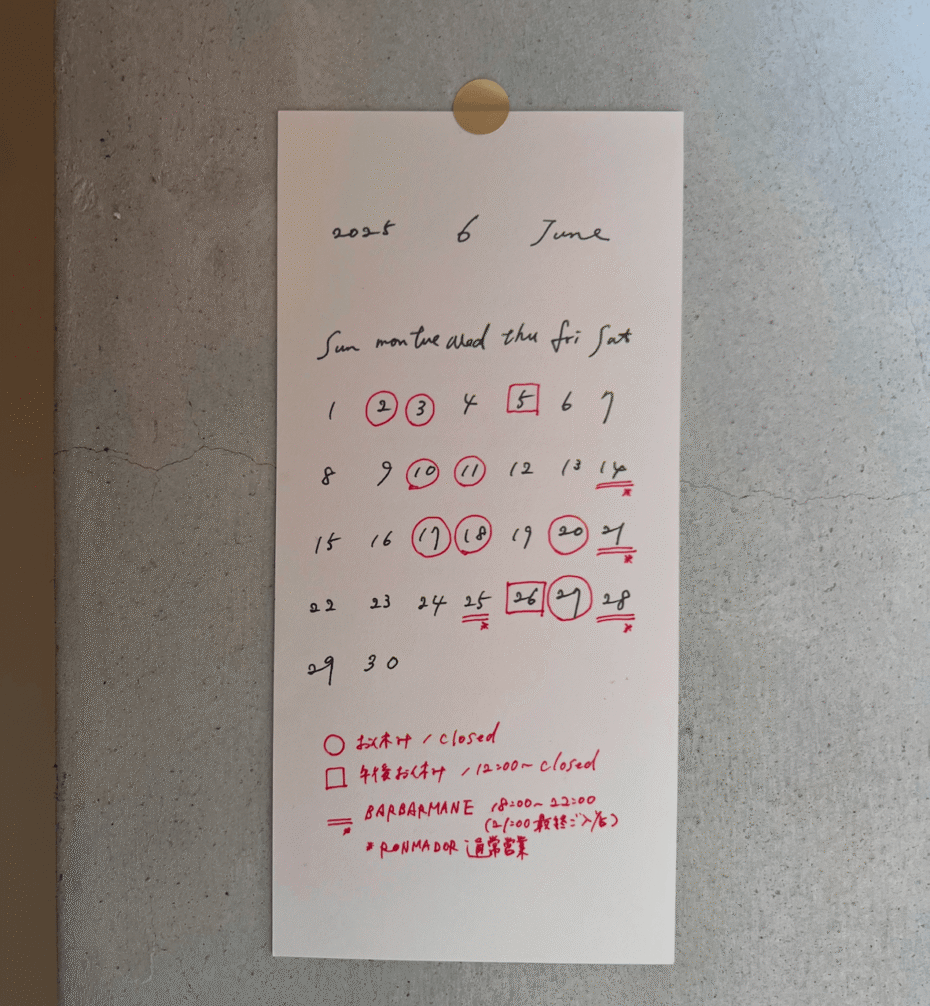 2025 6 June
Sun mon tue wed thu fri Sat
1 2 3 4 5 6 7
8 9 10 11 12 13 14
15 16 17 18 19 20 21
22 23 24 25 26 27 28
29 30
お休み / closed
午後お休み / 12:00~ closed
BARBARMANE 18:00~22:00
(21:00 最終ご入店)
* RONMADOR 通常営業